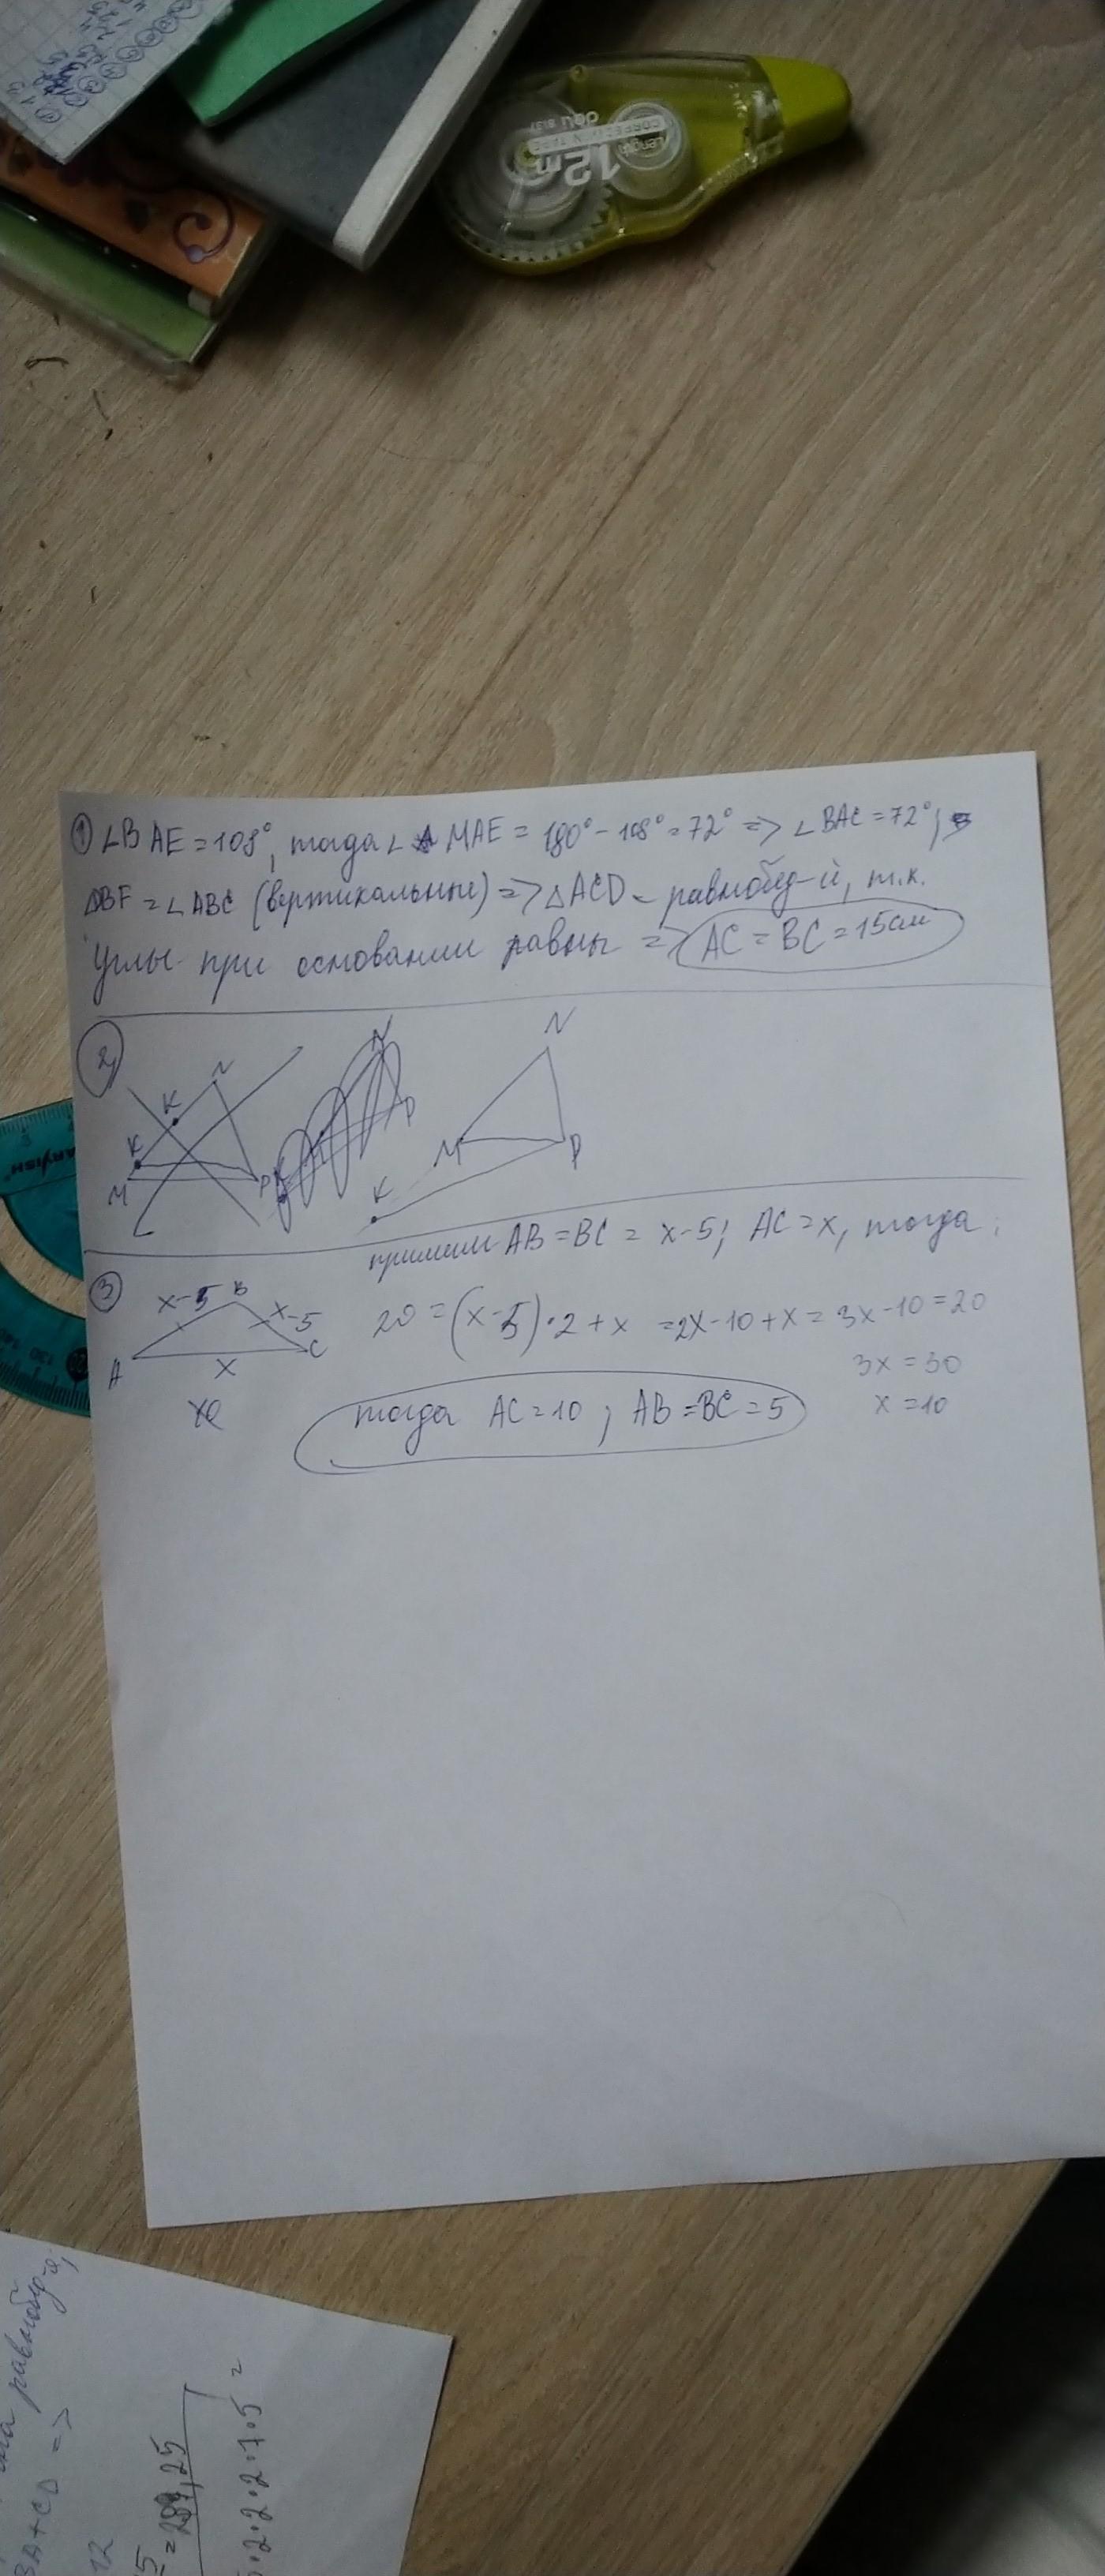 1 ∠BAE = 108°, тогда ∠ MAE = 180° - 108° = 72° => ∠BAC = 72°;
DBF = ∠ABC (вертикальные) => △ACD - равнобед-й, т.к.
Углы при основании равны => AC = BC = 15 см
2
N
K
K
M
P
N
P
N
M
P
K
3
примем AB = BC = x-5; AC = x, тогда:
x-5 B x-5
A x C
20 = (x-5)·2+x = 2x-10+x = 3x-10 = 20
3x = 30
x = 10
тогда AC = 10; AB = BC = 5
deli
CORRECTION TAPE
Length
12m
равнобед-я,
BA+CD =>
12
= 289,25
2·2·2·7·5 =